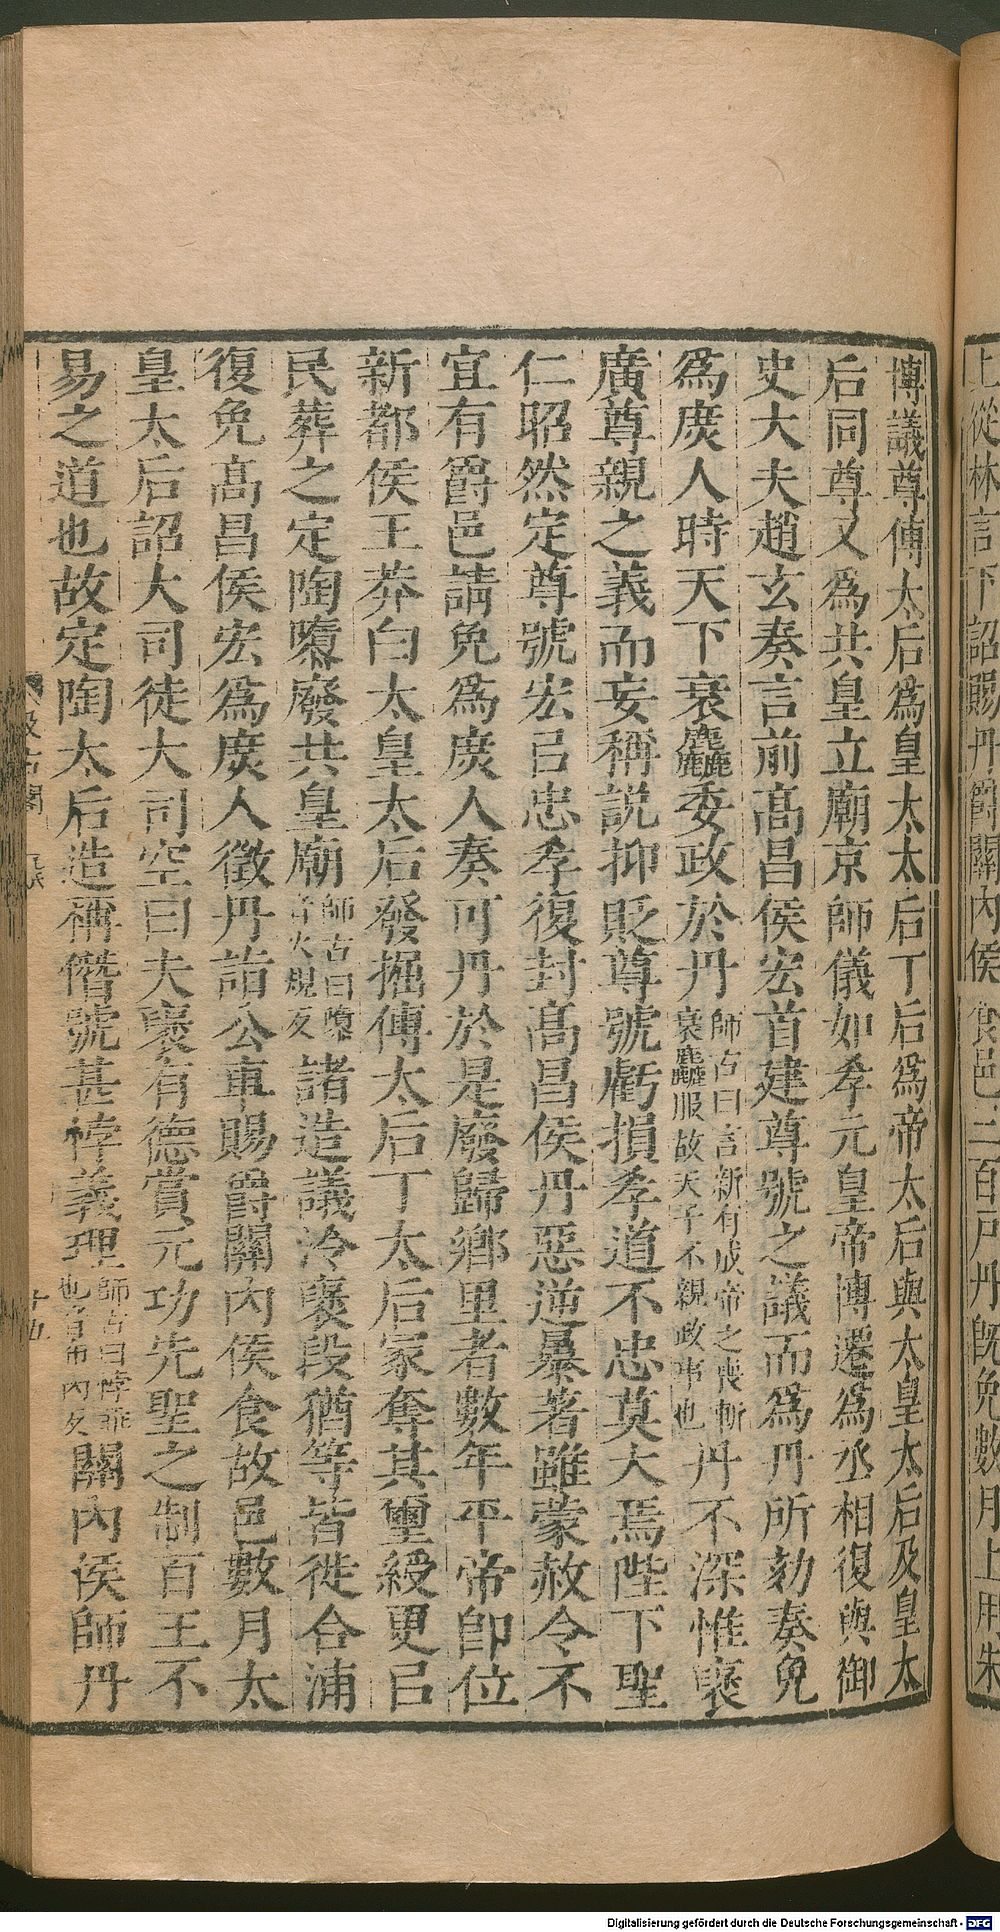 上從林言下詔賜丹爵關內侯食邑三百戶丹既免數月上用朱
博議尊傅太后爲皇太太后丁后爲帝太后與太皇太后及皇太
后同尊又爲共皇立廟京師儀如孝元皇帝博遷爲丞相復與御
史大夫趙玄奏言前高昌侯宏首建尊號之議而爲丹所劾奏免
爲庶人時天下衰麤委政於丹師古曰言新有成帝之喪斬衰麤服故天子不親政事也丹不深惟襃
廣尊親之義而妄稱說抑貶尊號虧損孝道不忠莫大焉陛下聖
仁昭然定尊號宏㠯忠孝復封高昌侯丹惡逆暴著雖蒙赦令不
宜有爵邑請免爲庶人奏可丹於是廢歸鄉里者數年平帝卽位
新都侯王莽白太皇太后發掘傅太后丁太后冢奪其璽綬更㠯
民葬之定陶隳廢共皇廟師古曰隳音火規反諸造議泠襃段猶等皆徙合浦
復免高昌侯宏爲庶人徵丹詣公車賜爵關內侯食故邑數月太
皇太后詔大司徒大司空曰夫襃有德賞元功先聖之制百王不
易之道也故定陶太后造稱僭號甚悖義理師古曰悖乖也音布內反關內侯師丹
汲古閣
十五
Digitalisierung gefördert durch die Deutsche Forschungsgemeinschaft - DFG